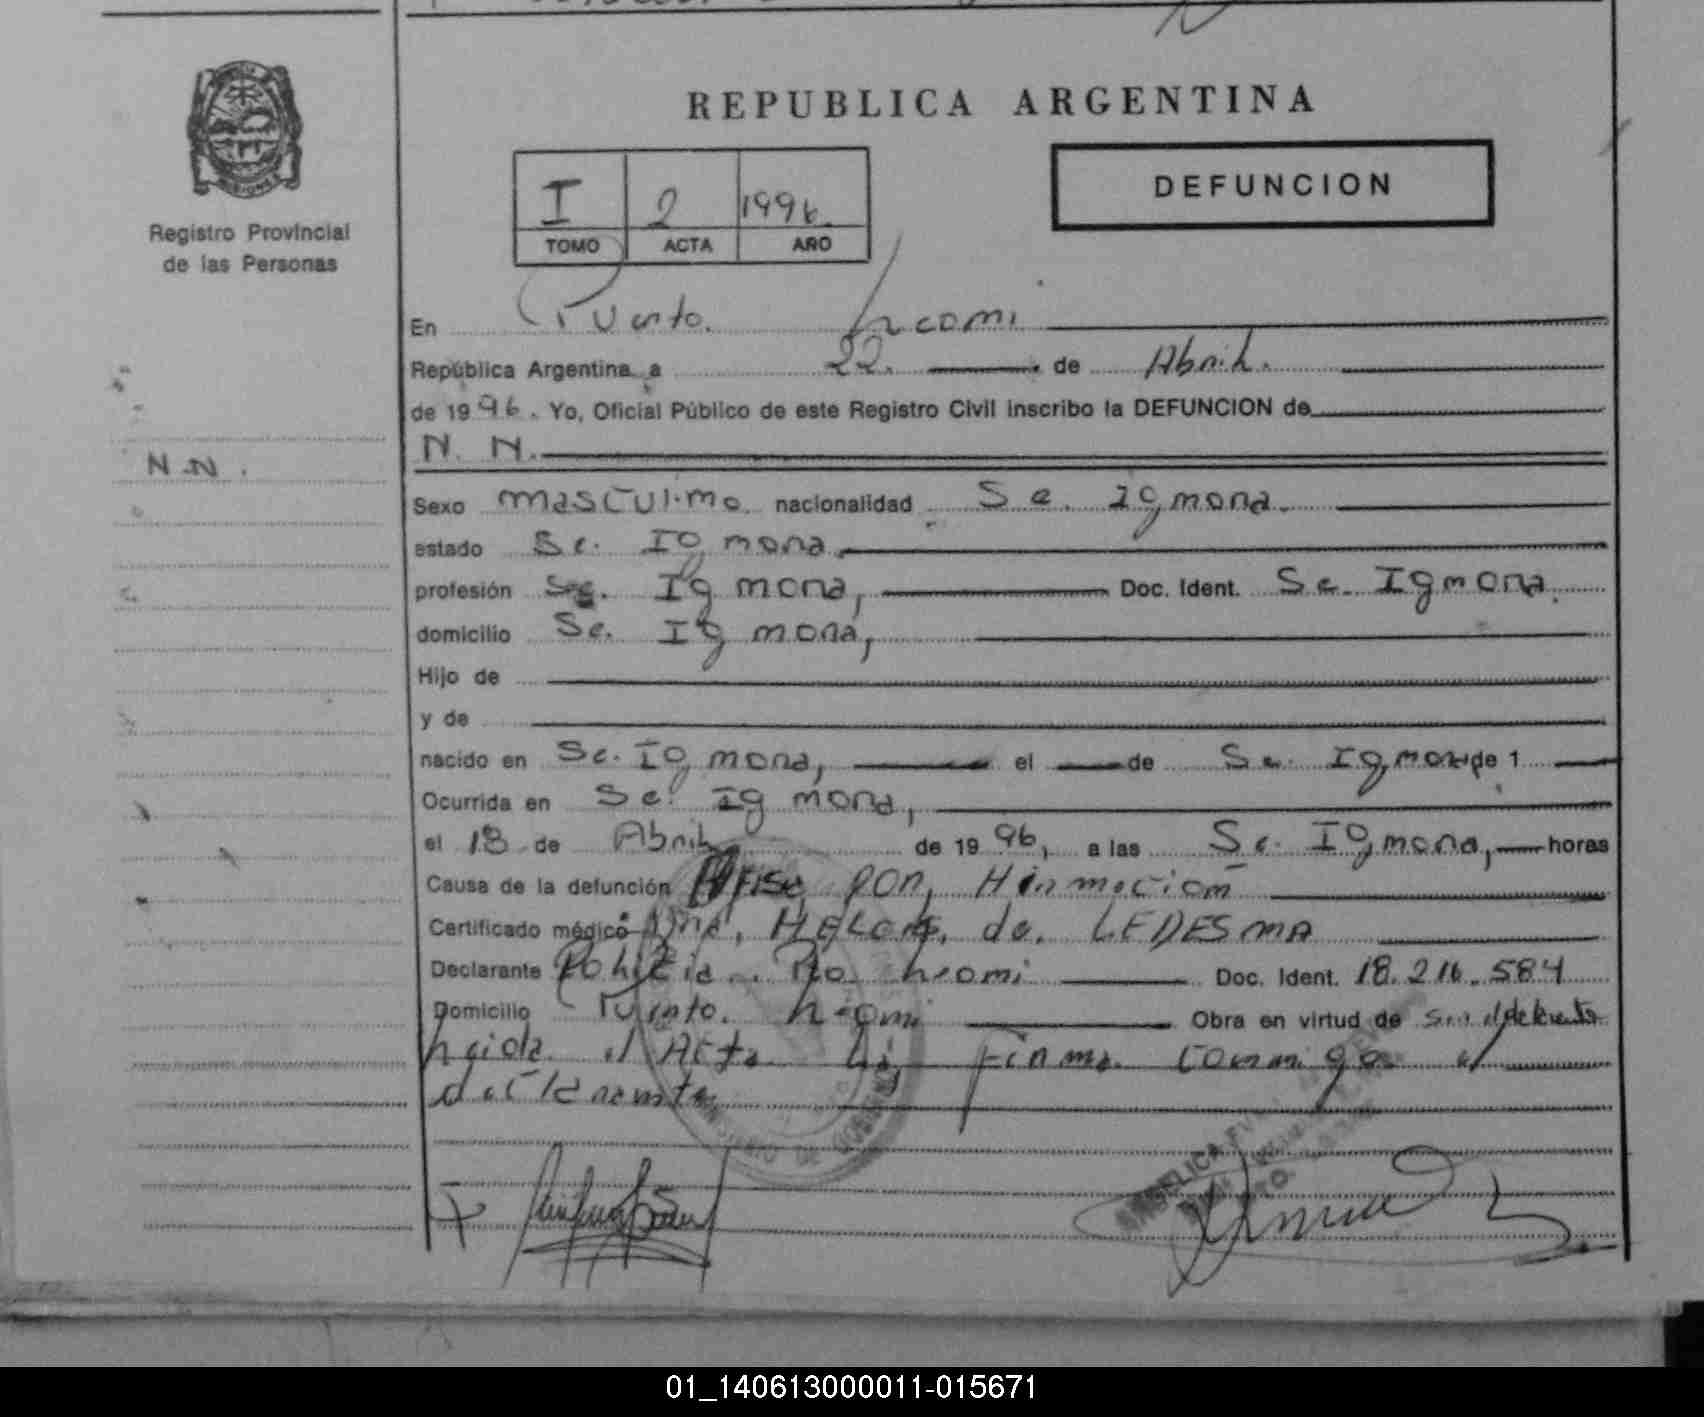 REPUBLICA ARGENTINA
DEFUNCION
I 2 1996
TOMO ACTA AÑO
Registro Provincial
de las Personas
En Puerto. Leoni
República Argentina, a 22. de Abril.
de 1996. Yo, Oficial Público de este Registro Civil inscribo la DEFUNCION de
N. N.
N.N.
Sexo masculino nacionalidad Se. Ignora.
estado Se. Ignora
profesión Se. Ignora, Doc. Ident. Se. Ignora.
domicilio Se. Ignora,
Hijo de
y de
nacido en Se. Ignora, el de Se. Ignora de 1
Ocurrida en Se. Ignora,
el 18 de Abril de 1996, a las Se. Ignora, horas
Causa de la defunción por
Certificado médico de. LEDESMA
Declarante Policia. Pto. Leoni Doc. Ident. 18.216.584
Domicilio Puerto. Leoni Obra en virtud de
Leida el Acta La Firma conmigo el
declarante
MINISTERIO DE GOBIERNO
ANGELICA
01_140613000011-015671